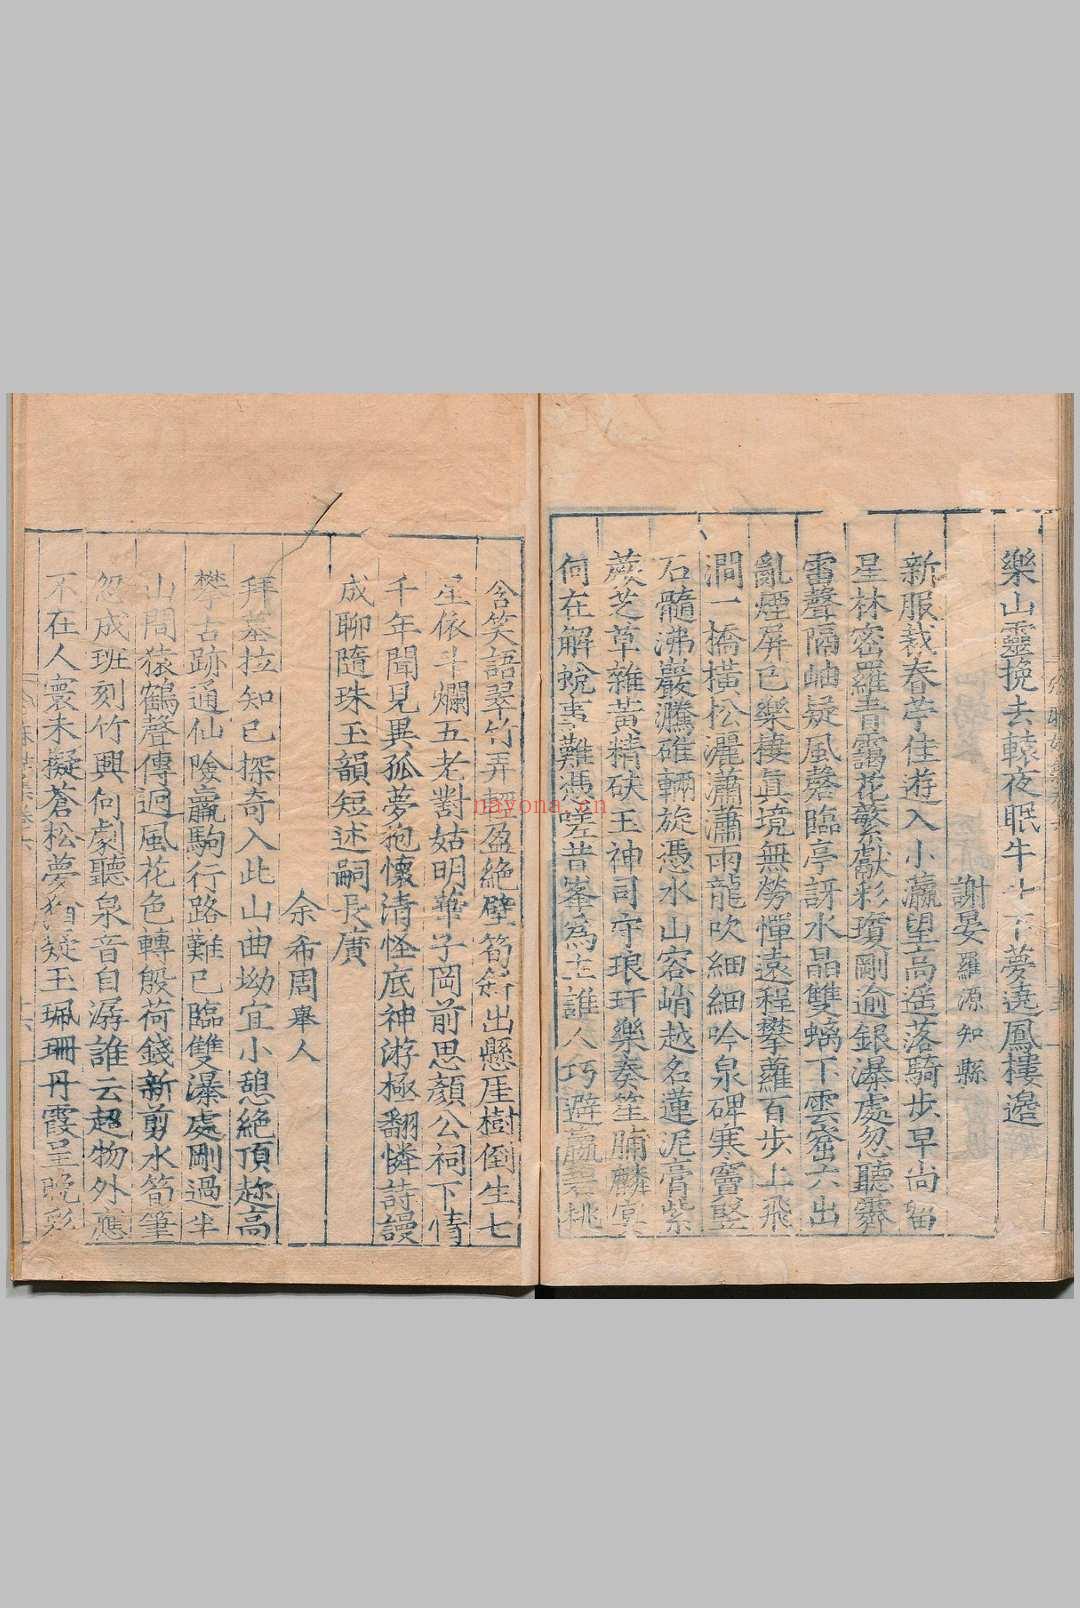 樂山靈挽去轅夜眠牛斗下夢遶鳳樓邊
謝晏羅源知縣
新服裁春苧佳遊入小瀛望高遥落騎步早尚
星林密羅青靄花繁獻彩瓊剛逾銀瀑處忽聽霽
雷聲隔岫疑風磬臨亭訝水晶雙螭下雲窟六出
亂煙屏邑樂棲眞境無勞憚遠程攀蘿百步上飛
澗一橋橫松灑瀟瀟雨龍吹細細吟泉碑寒竇竪
石髓沸巖騰碓輛旋憑水山容峭越名蓮泥膏紫
蕨芝草雜黃精砆玉神司守琅玕樂奏笙脯麟寔
何在解蛻事難憑嗟昔峯爲主誰人巧避嬴碧桃
含笑語翠竹弄輕盈絶壁筍斜出懸厓樹倒生七
星依斗爛五老對姑明華子岡前思顏公祠下情
千年聞見異孤夢抱懷清怪底神游極翻憐詩謾
成聊隨珠玉韻短述嗣長賡
余希周舉人
拜墓拉知已探奇入此山曲坳宜小憩絶頂趂高
攀古跡通仙嶮羸駒行路難已臨雙瀑處剛過半
山間猿鶴聲傳迥風花色轉殷荷錢新剪水筍筆
忽成班刻竹興何劇聽泉音自潺誰云超物外應
不在人寰未擬蒼松夢猶疑玉珮珊丹霞呈晚彩
nayona.cn